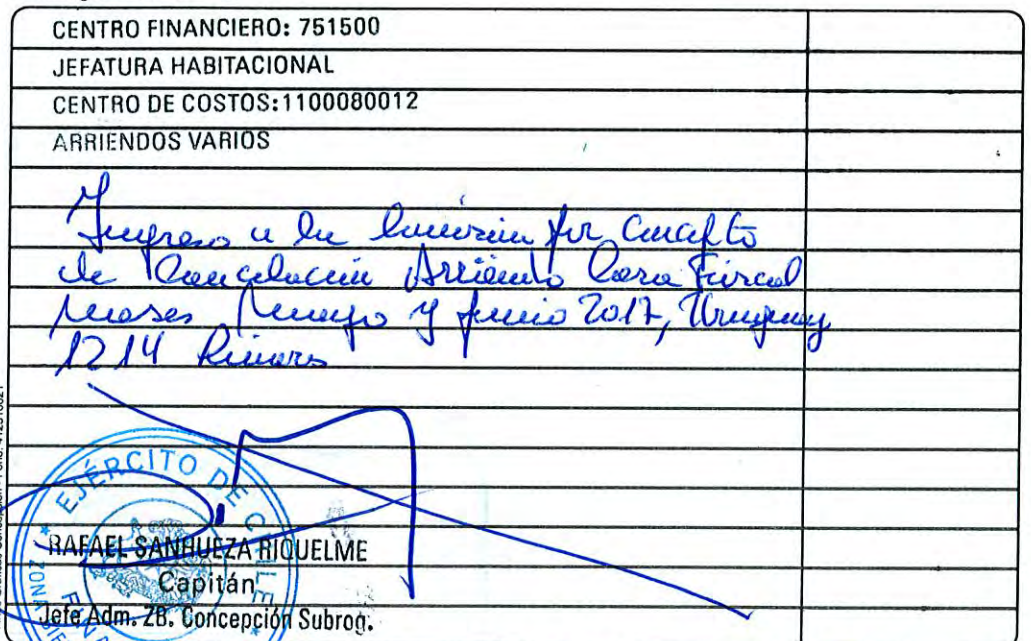 CENTRO FINANCIERO: 751500
JEFATURA HABITACIONAL
CENTRO DE COSTOS:1100080012
ARRIENDOS VARIOS
Ingreso a la por Concepto
de Cancelación Arriendo Casa Fiscal
Meses Mayo y Junio 2017, Uruguay
1214
EJÉRCITO DE CHILE
RAFAEL SANHUEZA RIQUELME
Capitán
Jefe Adm. ZB. Concepción Subrog.